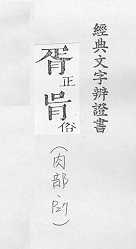 經典文字辨證書
胥正
𦙃俗
(肉部,21)